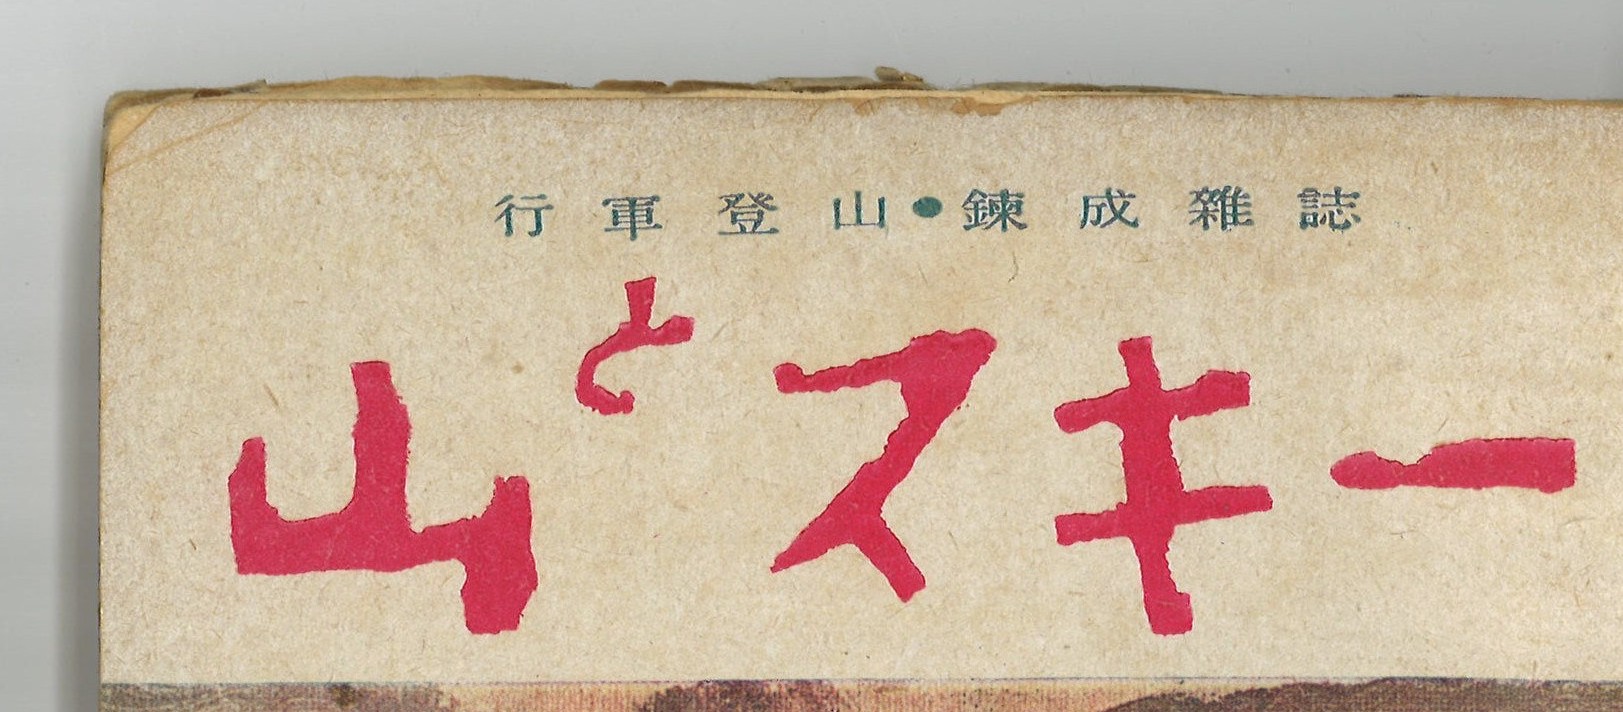 行軍登山●錬成雜誌
山とスキー